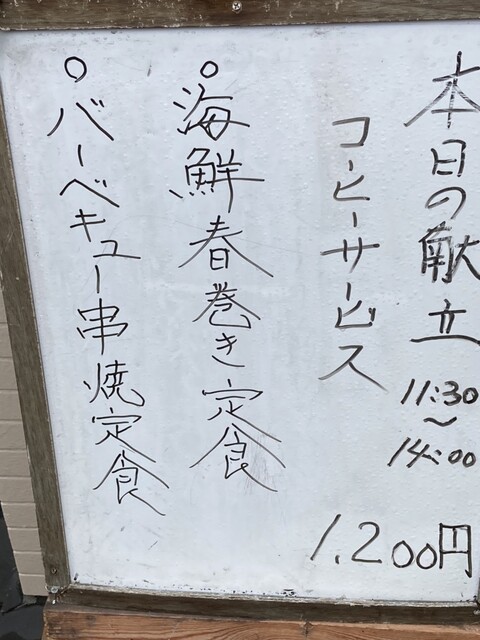 本日の献立
11:30
〜
14:00
コーヒーサービス
○海鮮春巻き定食
○バーベキュー串焼定食
1.200円